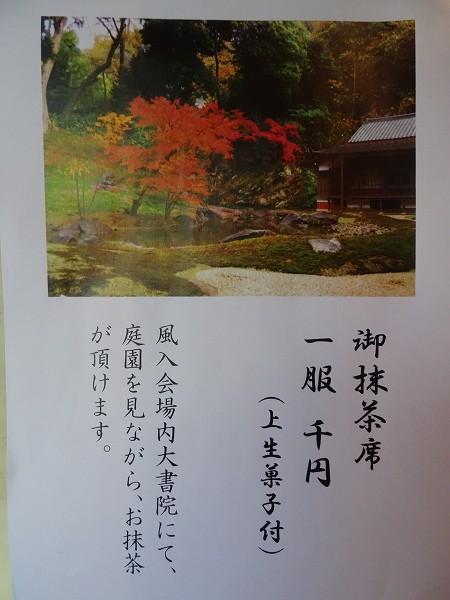 御抹茶席
一服 千円
(上生菓子付)
風入会場内大書院にて、
庭園を見ながら、お抹茶
が頂けます。